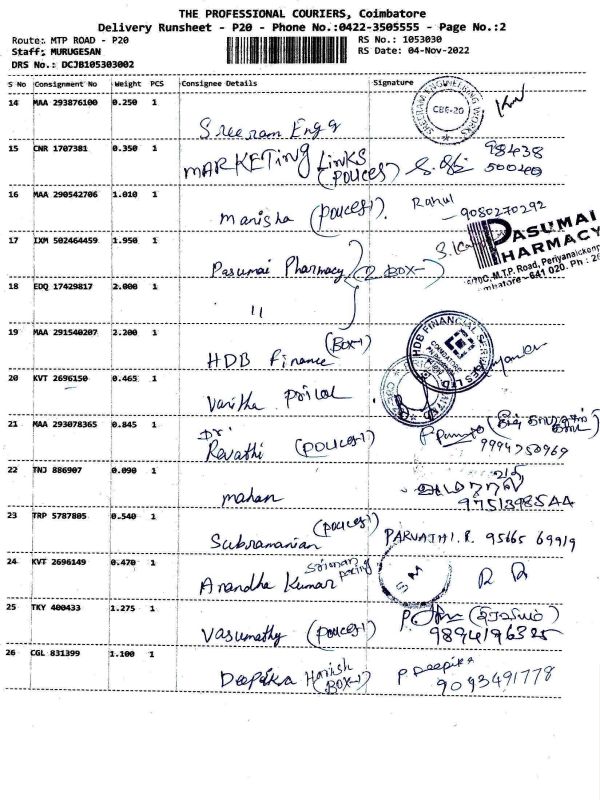 THE PROFESSIONAL COURIERS, Coimbatore
Delivery Runsheet - P20 - Phone No.:0422-3505555 - Page No.:2
Route: MTP ROAD - P20
RS No.: 1053030
Staff: MURUGESAN
RS Date: 04-Nov-2022
DRS No.: DCJB105303002
S No Consignment No Weight PCS Consignee Details Signature
14 MAA 293876100 0.250 1
SREERAM ENGINEERING WORKS
CBE-20
Sreeram Engg
15 CNR 1707381 0.350 1
MARKETing Links
(POUCES)
98438
50040
16 MAA 290542706 1.010 1
Manisha (POUCES1) Rahul
9080270292
17 IXM 502464459 1.950 1
PASUMAI
PHARMACY
M.T.P. Road, Periyanaickenp
mbatore - 641 020. Ph : 26
Pasumai Pharmacy (2 BOX)
18 EDQ 17429817 2.000 1
"
19 MAA 291540207 2.200 1
HDB Finance (BOX-1)
HDB FINANCIAL SERVICES LTD
COIMBATORE
20 KVT 2696150 0.465 1
Vanitha
21 MAA 293078365 0.845 1
Dr.
Revathi (POUCES1)
9994750969
22 TNJ 886907 0.090 1
mahan
23 TRP 5787805 0.540 1
Subramanian (POUCES1)
PARVATHI. R. 95665 69919
24 KVT 2696149 0.470 1
Anandha Kumar
S M
25 TKY 400433 1.275 1
Vasumathy (POUCES1)
9894196325
26 CGL 831399 1.100 1
Deepika Harish
(BOX-1)
P. Deepika
9093491778